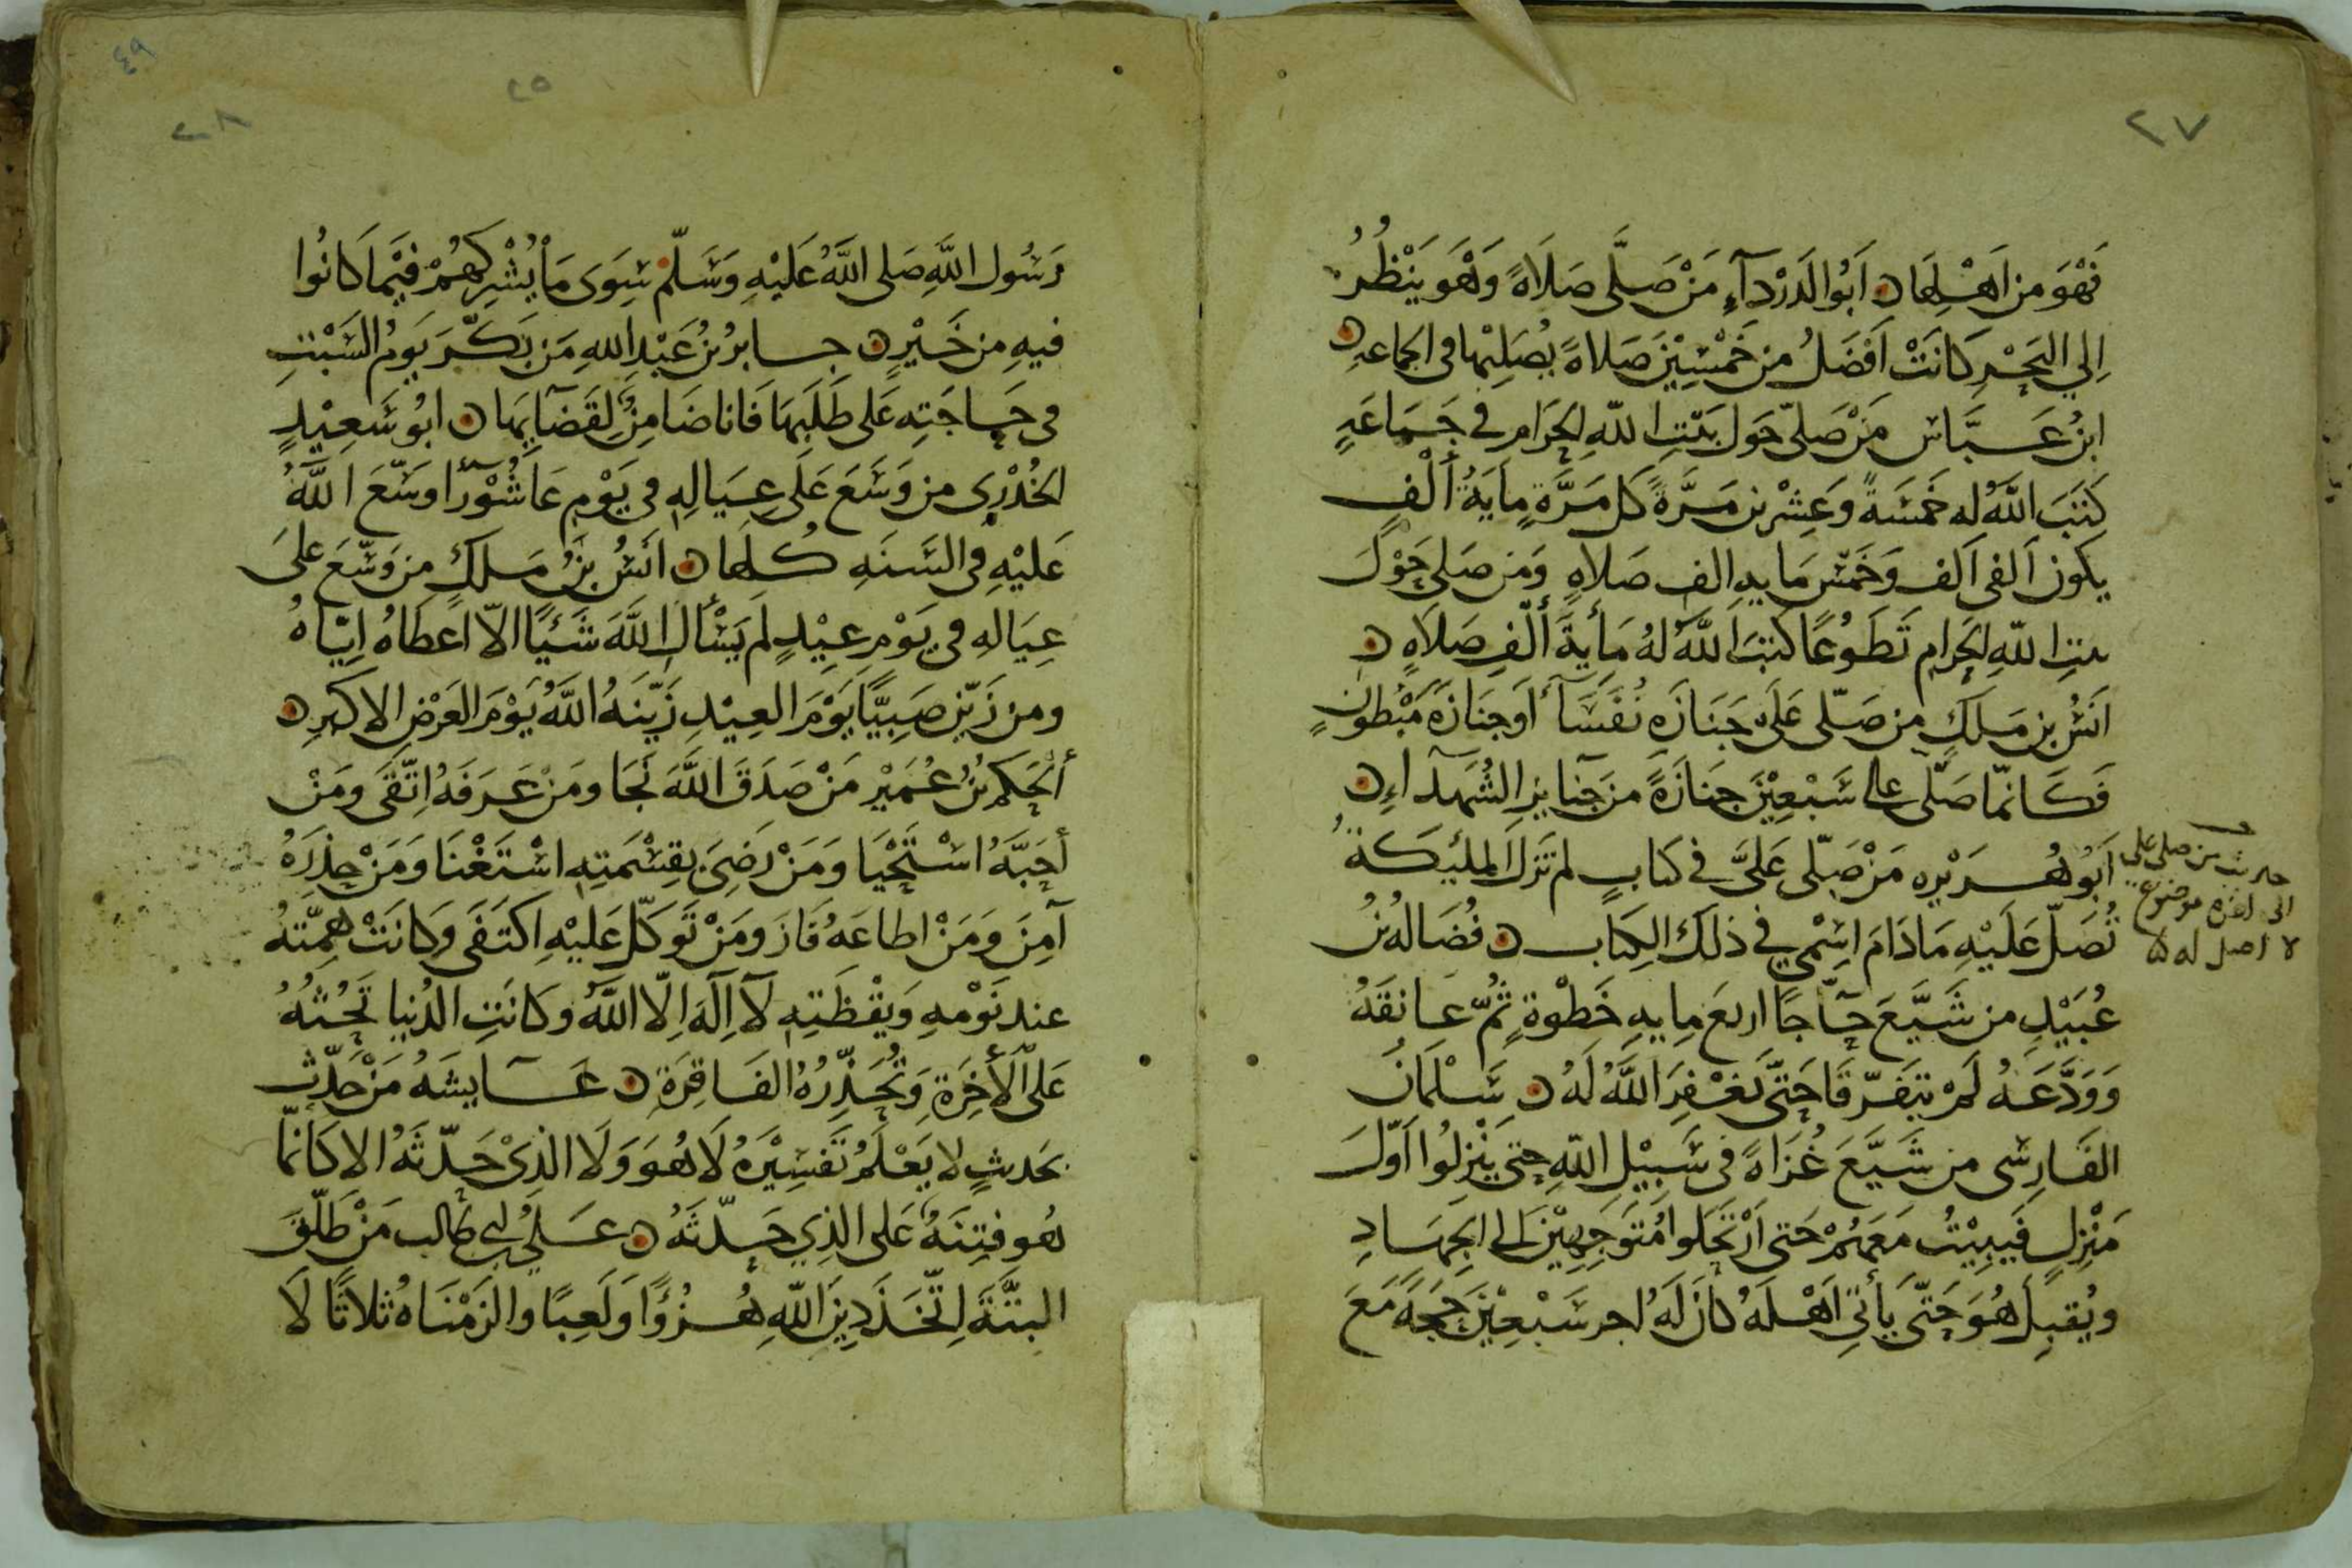 ٢٧
فَهْوَ من اَهْلِهَا ن اَبُو الدَرْدآءِ مَنْ صَلَّى صَلَاةً وَهْوَ يَنْظُرُ
اِلي البَحْرِ كَانَتْ اَفْضَلُ من خَمْسِيْنَ صَلاةً يُصَلِيْها فى الجماعه ن
ابنُ عَبَّاس مَنْ صَلّى حَول بَيْتِ اللّهِ الحَرَام فى جَمَاعَهٍ
كَتَبَ اللَّهُ له خمَسَةً وَعِشْرين مَرَّةً كل مَرَّةٍ مِأيَةُ أَلْفٍ
يكون اَلفى اَلف وَخَمْس مَايهِ الف صَلاهٍ وَمَن صَلى حَوْلَ
بيتِ اللّهِ الحَرام تَطَوُعًا كَتبَ اللَّهُ لهُ مَأيةَ أَلْفِ صَلاَهٍ ن
اَنَسُ بن مَلكٍ من صَلّى عَلى جَنَازَهِ نُفَسَآءَ أَو جنَازَهَ مَبْطُونٍ
فَكَانمّا صَلّى على سَبْعِيْنَ جنَازَةً من جَنآيزِ الشُهَدآءِ ن
اَبُو هُرَيْره مَنْ صَلّى عَليَّ فى كتابٍ لم تَزل المليكَةُ
تُصَلّ عَلَيْهِ مَادَامَ اسِمْي في ذلكَ الِكتاب ن فُضَالهُ بْنُ
عُبَيْدٍ من شَيَّعَ حَآجًا اربعَ مِايهِ خَطْوةٍ ثُمّ عانقَهُ
وَوَدَّعَهُ لَمْ يتَفَرّقَا حَتىَّ يَغْفِرَ اللَّهُ لَهُ ن سَلْمَانُ
الفَارِسى من شَيَّعَ غُزَاةً فى سَبِيْلِ اللّهِ حتى يَنْزِلُوا اَوّلَ
مَنْزِلٍ فَيَبِيْتُ مَعَهُمْ حَتى اَرْتَحَلوا مُتَوَجِهِيْنَ الى الجِهَادِ
ويُقبِلَ هُوَ حَتىَّ يَأتي اَهْلَهُ كانَ لَهُ اجر سَبْعِيْنَ حجَهً مَعَ
حديث من صلى علي
الى اخره موضوع
لا اصل له
٤٩
٢٥
٢٨
رَسُول اللَّهِ صَلى اللَّهُ عَلَيْهِ وَسَلّمَ سِوَى مَا يُشْرِكهُمْ فيْمَا كَانُوا
فيهِ من خَيْرٍ ن جابرُ بْنُ عَبْدِ اللهِ مَن بَكّرَ يَومُ السَبْتِ
فى حَاجَتِهِ عَلى طَلَبِهَا فَانا ضَامِنٌ لِقَضَايهَا ن ابُو سَعِيْدٍ
الخُدْرِى من وَسَعَ عَلَى عِيَالِهِ فى يَوْمِ عَاشُوْرآءَ وَسّعَ اللَّهُ
عَليْهِ فى السَنَهِ كُلهَا ن انَسُ بنُ مَلكٍ من وَسّعَ عَلىَ
عِيَالهِ فى يَوْمِ عِيْدٍ لم يَسْأَل اللَّهَ شَيْئًا الاّ اعطَاهُ اِيّاهُ
ومن زَيّن صَبِيًّا يَوْمَ العِيْدِ زَيّنَهُ اللَّهُ يَوْمَ العَرْضِ الاكبرِ ن
أَلحَكم بْنُ عُمَيْرٍ مَنْ صَدَقَ اللَّهَ نَجَا ومَنْ عَرَفَهُ اتّقَى ومَنْ
أَحَبَّهُ اسْتَحْيَا وَمَنْ رَضِىَ بقِسْمَتِهِ اسْتَغْنَا وَمَنْ حذِرَهُ
آمِنَ وَمَنْ اطاعَهُ فَازَ ومَنْ تَوكّل عَليْهِ اكتَفَى وَكانَتْ هِمّتهُ
عند نَوْمهِ وَيقْظَتِهِ لآ اِلَهَ اِلّا اللَّهُ وكانَتِ الدُنيا تَحُثهُ
عَلَى الأَخِرَةِ وَتُحَذِّرُهُ الفَاقِرَةِ ن عَايشَهُ مَنْ حَدّث
بحَديثٍ لا يَعْلَمُ تَفسِيْرَهُ لاَ هُوَ وَلَا الذِىْ حَدّثَهُ الا كَانمّا
هُو فِتنَهٌ عَلى الذِي حَدّثَهُ ن عَليُّ بن ابى طالب مَنْ طَلّقَ
البتَّةَ اِتّخَذَ دِينَ اللّهِ هُزُؤًا وَلَعِبًا والزَمْنَاهُ ثلاثًا لَا